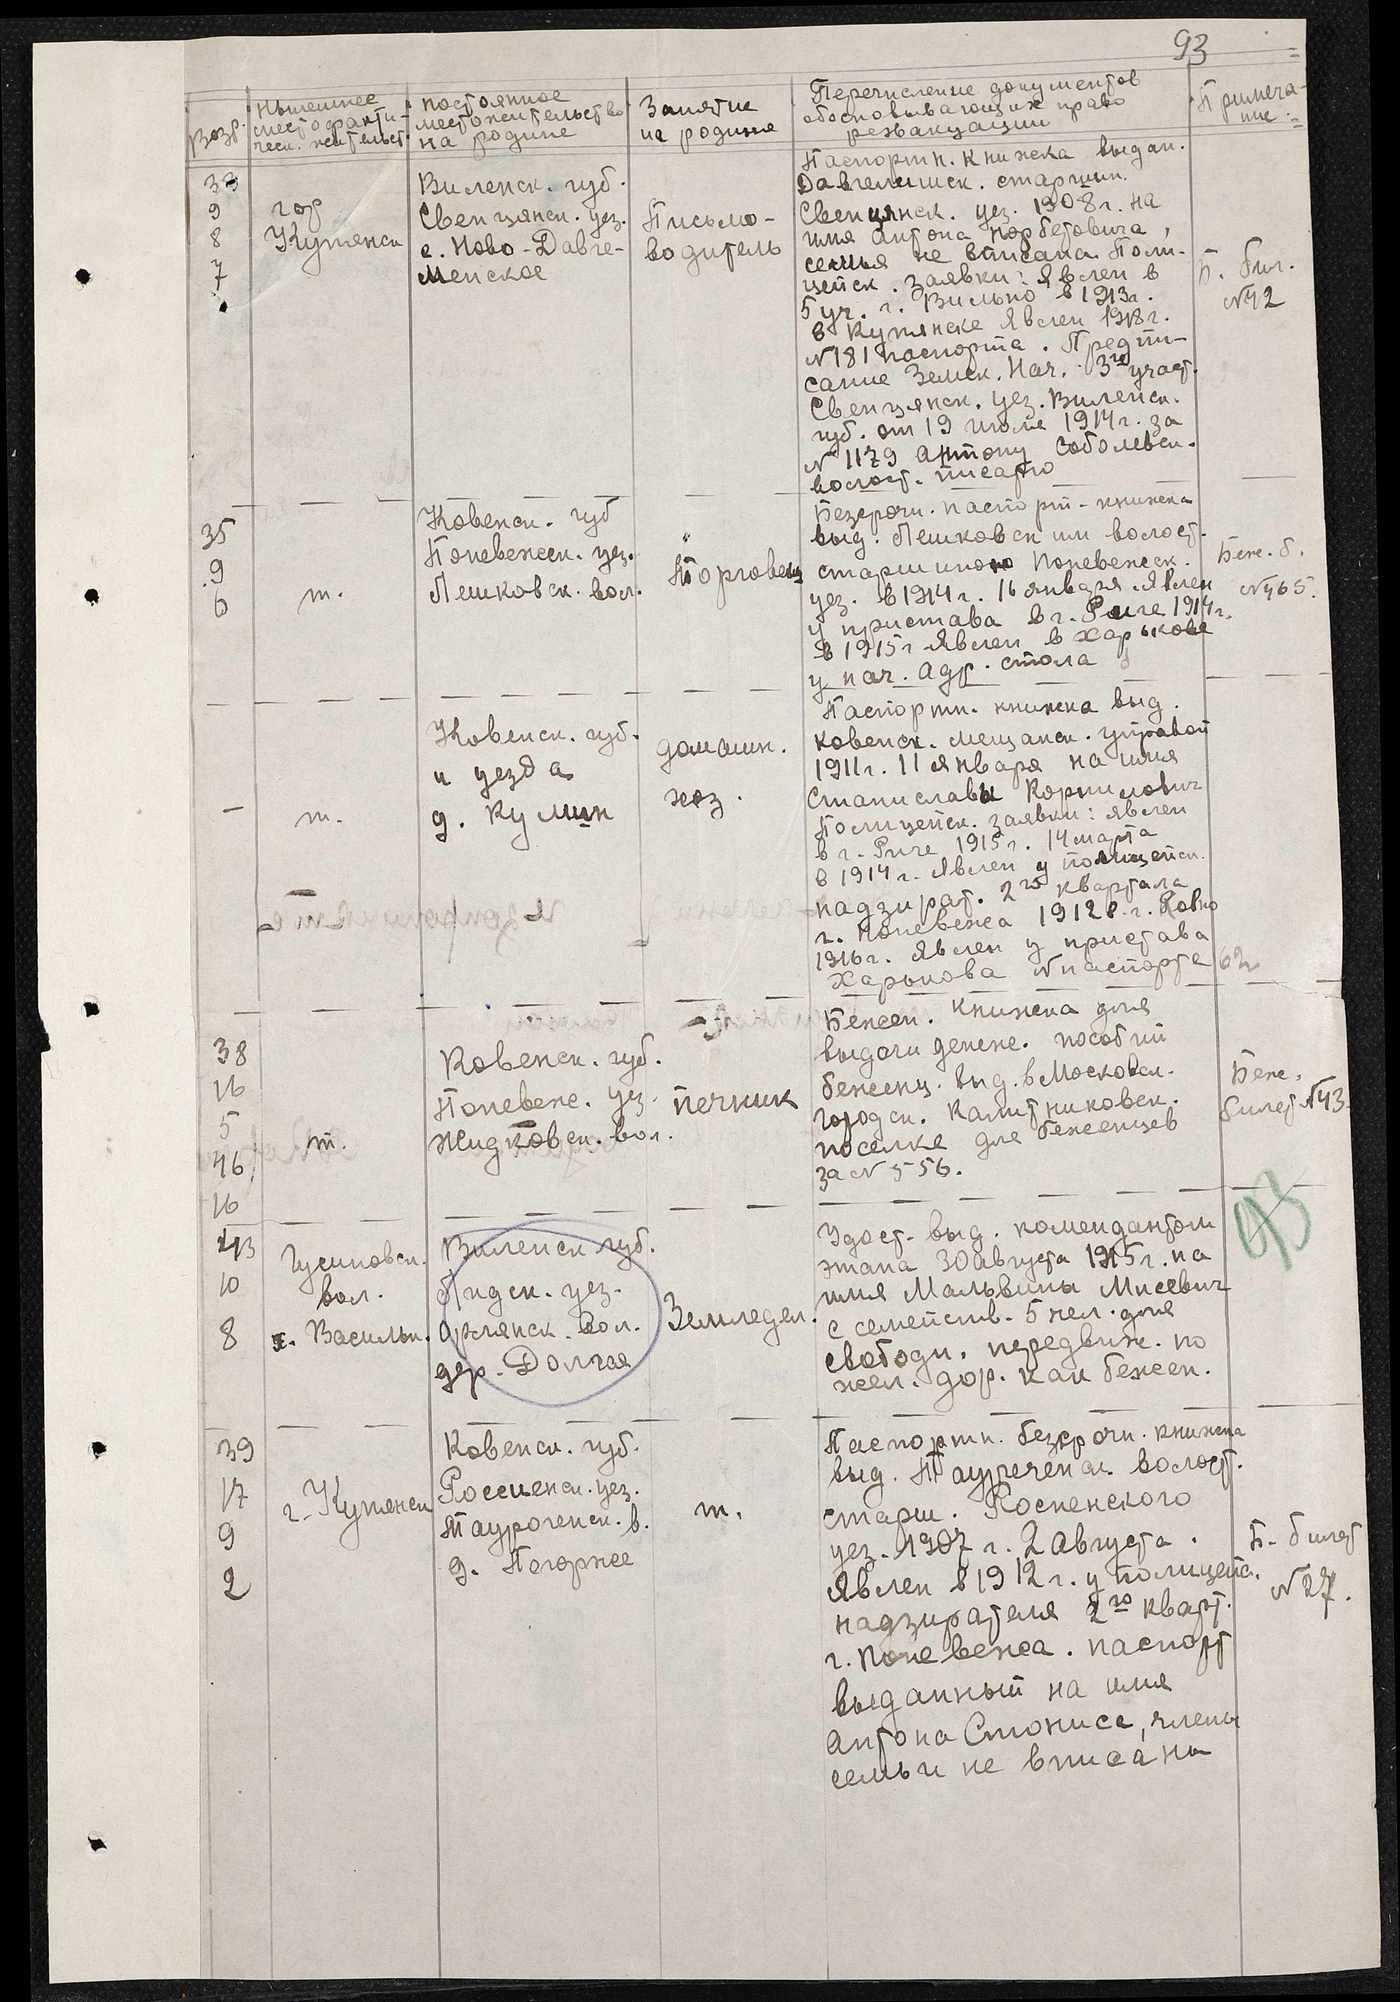 93
Возр.
Нынешнее
место факти-
ческ. жительст.
постоянное
местожительство
на родине
Занятие
на родине
Перечисление документов
обосновывающих право
реэвакуации
Примеча-
ние
33
9
8
7
гор
Купянск
Виленск. губ.
Свенцянск. уез.
с. Ново-Давге-
Письмо-
водитель
Паспортн. книжка выдан.
Давгелишск. старшин.
Свенцянск. уез. 1908 г. на
имя Антона Норбетовича,
семья не вписана. Поли-
цейск. заявки: Явлен в
5 уч. г. Вильно в 1913 г.
в Купянске явлен 1918 г.
№ 181 паспорта. Предпи-
сание Земск. Нач. 3го участ.
Свенцянск. уез. Виленск.
губ. от 19 июля 1914 г. за
№ 1179 Антону Соболевск.
волост. писарю
Б. бил.
№ 42
35
9
6
т.
Ковенск. губ
Поневежск. уез.
Пешковск. вол.
Торговец
Безсрочн. паспорт-книжка
выд. Пешковским волост.
старшиною Поневежск.
уез. в 1914 г. 16 января. Явлен
у пристава в г. Риге 1914 г.
в 1915 г явлен в Харькове
у нач. адр. стола
Беж. б.
№ 465.
-
т.
Ковенск. губ.
и уезда
домашн.
хоз.
Паспортн. книжка выд.
ковенск. мещанск. управой
1911 г. 11 января на имя
Станиславы Корнилович
Полицейск. заявки: явлен
в г. Риге 1915 г. 14 марта
в 1914 г. явлен у полицейск.
надзират. 2го квартала
г. Поневежа 1912 г. Ковно
1916 г. явлен у пристава
Харькова № паспорта 62
38
16
5
46
16
т.
Ковенск. губ.
Поневеж. уез.
Жидковск. вол.
печник
Бежен. книжка для
выдачи денеж. пособий
беженц. выд. в Московск.
городск. Калитниковск.
поселке для беженцев
за № 556.
Беж.
билет № 43
93
43
10
8
Гусиновск.
вол.
х. Васильк.
Виленск губ.
Лидск. уез.
Орлянск. вол.
дер. Долгая
Земледел.
Удост. выд. комендантом
этапа 30 августа 1915 г. на
имя Мальвины Мисевич
с семейств. 5 чел. для
свободн. передвиж. по
жел. дор. как бежен.
39
17
9
2
г. Купянск
Ковенск. губ.
Россиенск. уез.
Таурогенск. в.
т.
Паспортн. безсрочн. книжка
выд. Таурогенск. волост.
старш. Россиенского
уез. 1907 г. 2 Августа.
Явлен в 1912 г. у полицейск.
надзирателя 2го кварт.
г. Поневежа. паспорт
выданный на имя
Антона Стониса, члены
семьи не вписаны
Б. билет
№ 27.